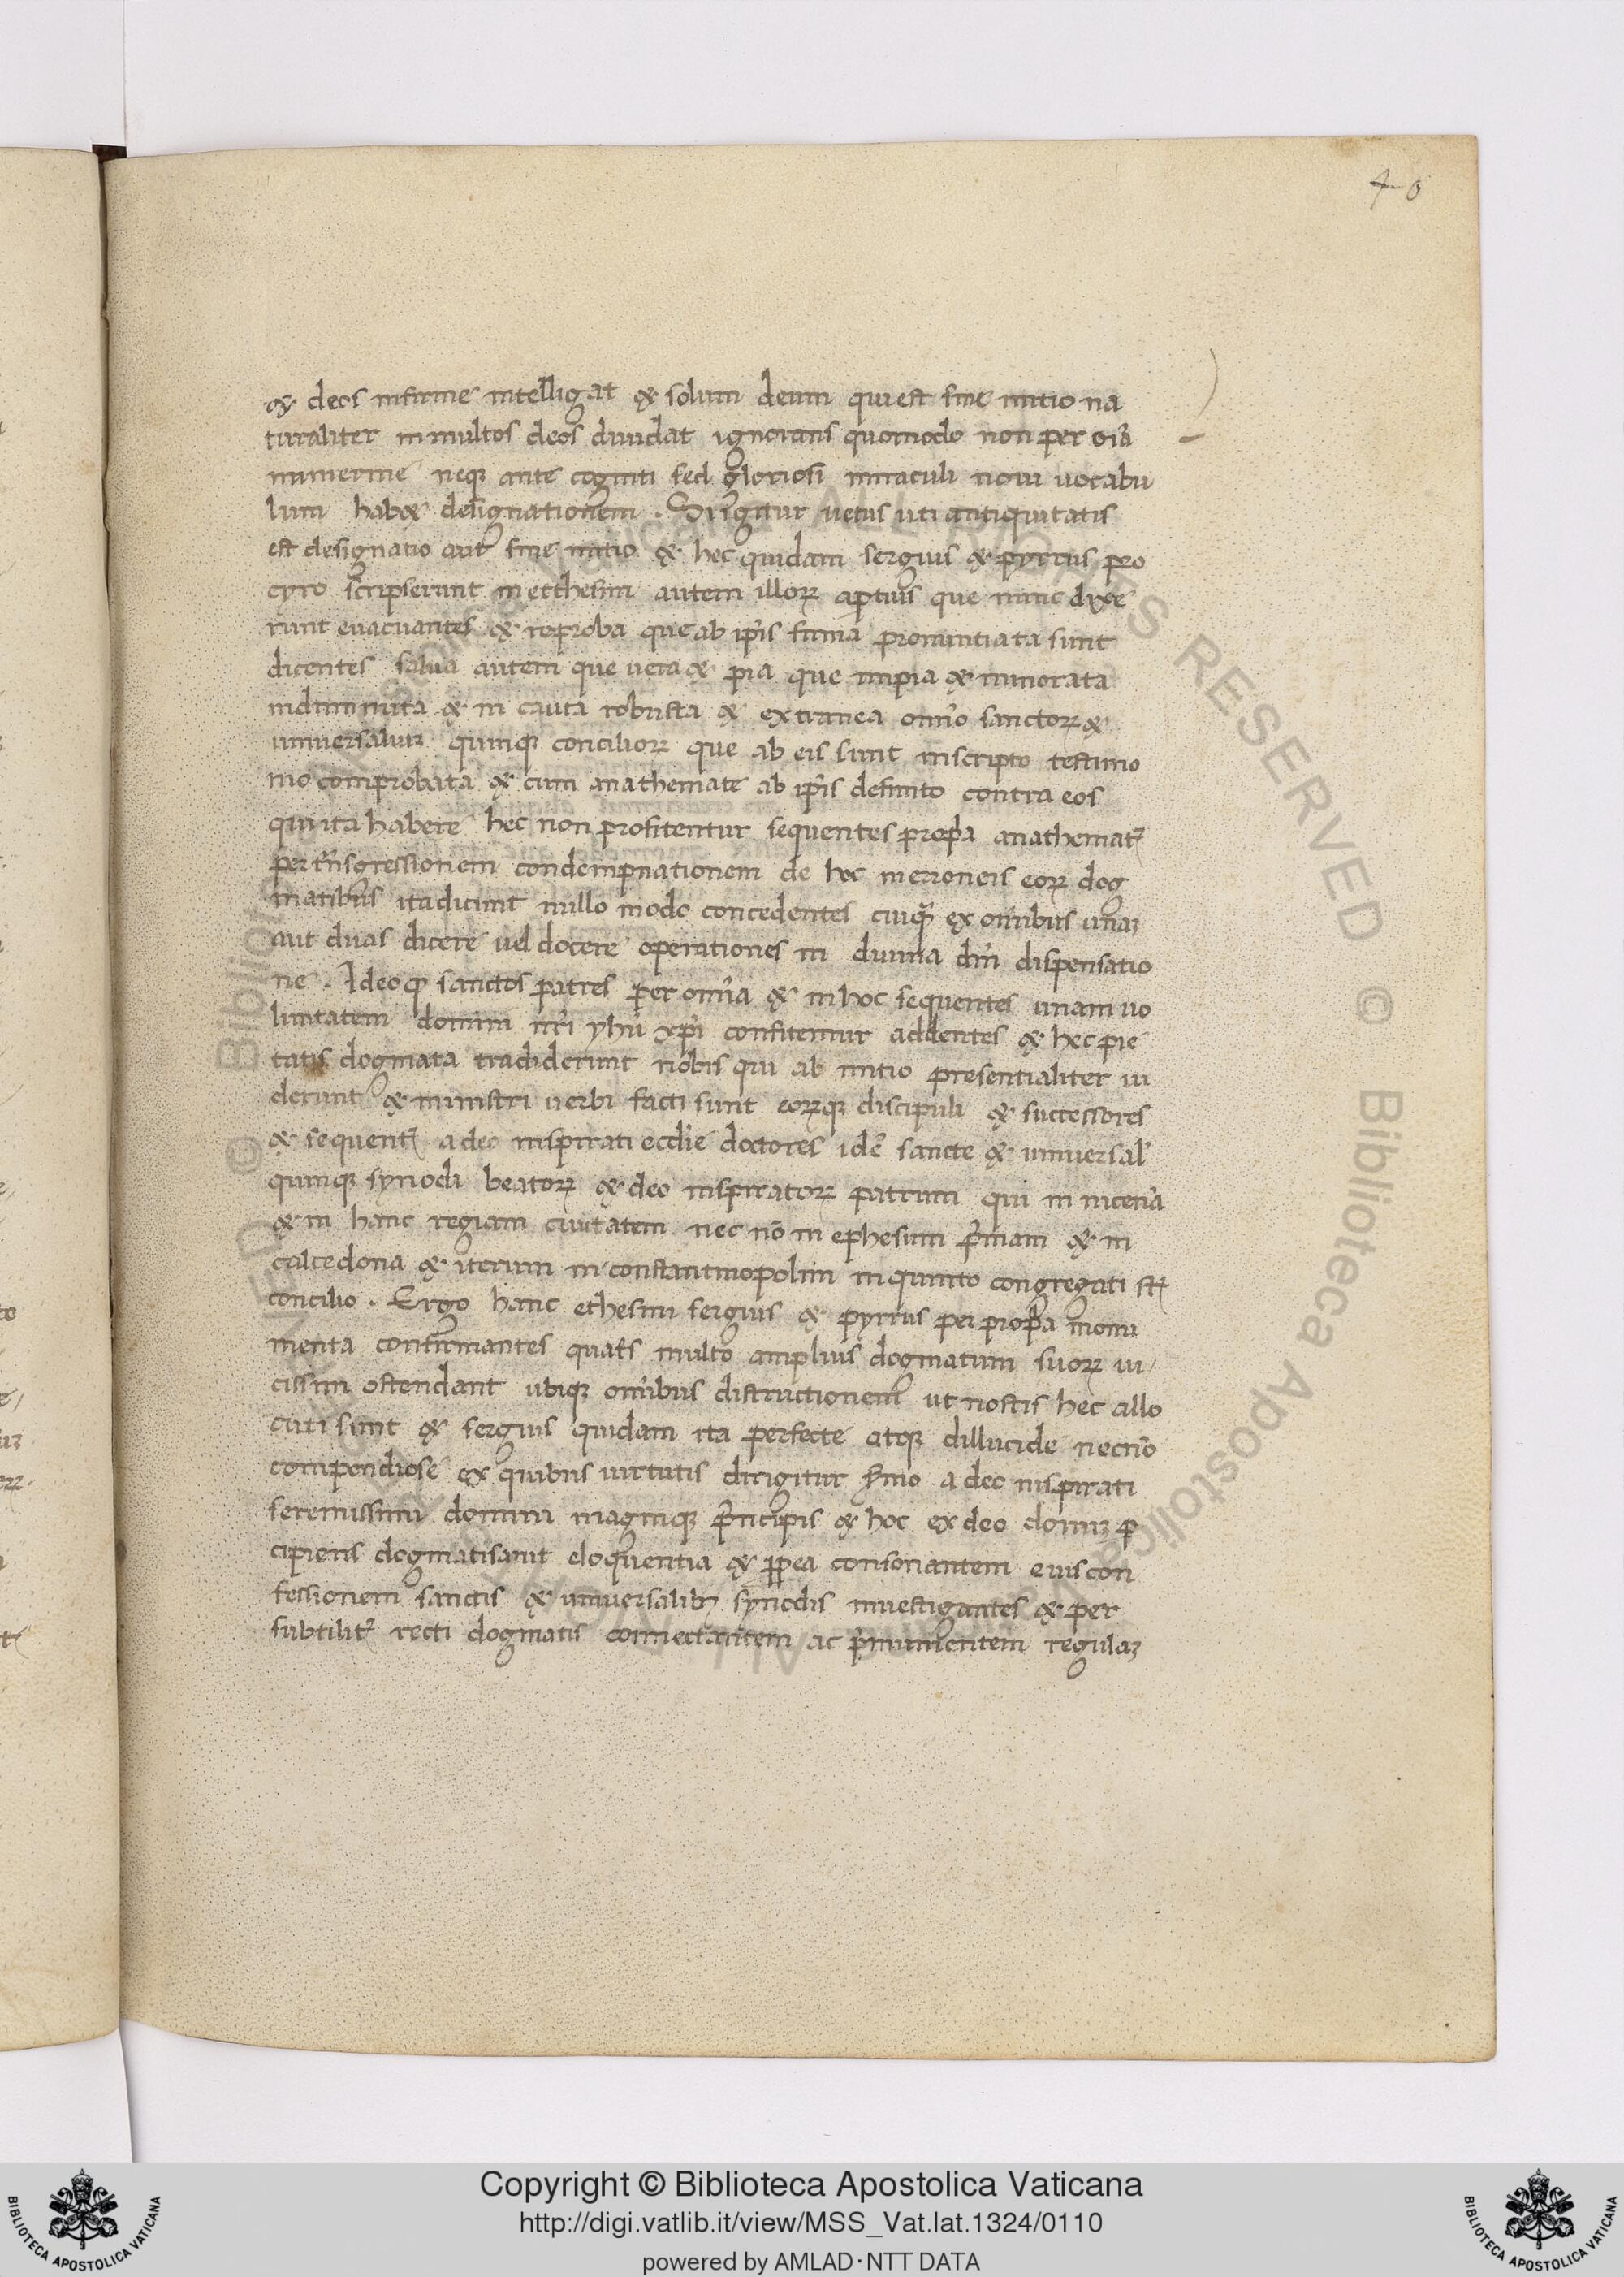 40
& deos infirme intelligat & solum deum qui est sine initio na
turaliter in multos deos diuidat ignorans quomodo non per oīa
numerme neqꝫ ante cogniti sed gloriosi miraculi noui uocabu
lum habet designationem . Si igitur uetus uti antiquitatis
est designatio aut sine initio & hec quidam sergius & pyrrus pro
cyro scripserunt in ecthesim autem illorꝝ apertius que nunc dixe
runt euacuantes & reproba que ab ip̄is firma pronuntiata sunt
dicentes salua autem que uera & pia que impia & minorata
indiminuta & in cauta robusta & extranea omīo sanctorꝝ &
uniuersaliuꝫ quinqꝫ conciliorꝝ que ab eis sunt inscripto testimo
nio comprobata & cum anathemate ab ip̄is definito contra eos
qui ita habere hec non profitentur sequentes prop̄a anathemat̄
per trn̄sgressionem condempnationem de hoc in erroneis eorꝝ dog
matibus ita dicunt nullo modo concedentes cuiquā ex omībus unaꝫ
aut duas dicere uel docere operationes in diuina dn̄i dispensatio
ne . Ideoqꝫ sanctos patres per omīa & in hoc sequentes unam uo
luntatem domini nr̄i yhū xp̄i confitemur addentes & hec pie
tatis dogmata tradiderunt nobis qui ab initio presentialiter ui
derunt & ministri uerbi facti sunt eorꝝqꝫ discipuli & successores
& sequent̄ a deo inspirati eccl̄ie doctores idē sancte & uniuersal̄
quinqꝫ synodi beatorꝝ & deo inspiratorꝝ patrum qui in nicenā
& in hanc regiam ciuitatem nec nō in ephesum p̄mam & in
calcedona & iterum in constantinopolim in quinto congregati st̄
concilio . Ergo hanc ethesim sergius & pyrrus per prop̄a monu
menta confirmantes quat̄s multo amplius dogmatum suorꝝ ui
cissim ostendant ubiqꝫ omībus distructionem ut nostis hec allo
cuti sunt & sergius quidam ita perfecte atqꝫ dillucide necnō
compendiose ex quibus uirtutis dirigitur s̄mo a deo inspirati
serenissimi domini magniqꝫ p̄ncipis & hoc ex deo donuꝫ ꝑ
cipiens dogmatisauit eloquentia & ꝓpea consonantem eius con
fessionem sanctis & uniuersalibꝫ synodis inuestigantes & per
subtilit̄ recti dogmatis connectantem ac p̄munientem regulaꝫ
Copyright © Biblioteca Apostolica Vaticana
http://digi.vatlib.it/view/MSS_Vat.lat.1324/0110
powered by AMLAD·NTT DATA